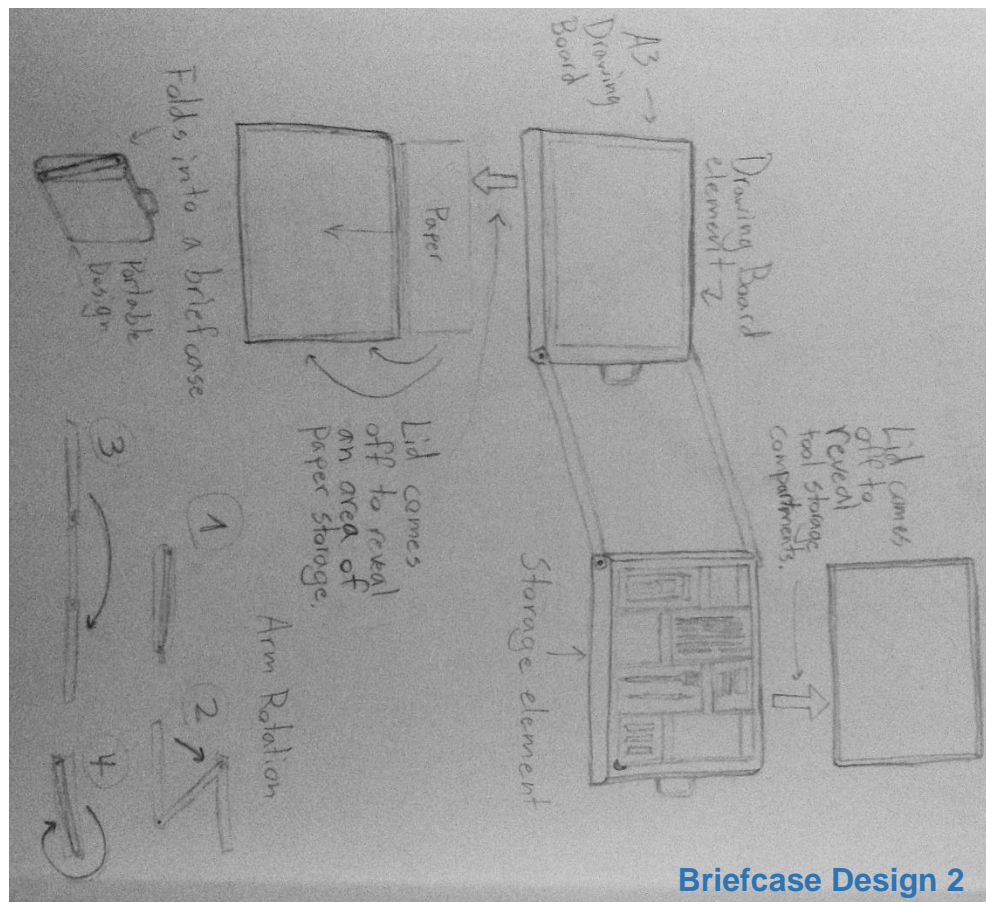 A3
Drawing
Board
Drawing Board
element
Lid comes
off to
reveal
tool storage
compartments.
Paper
Lid comes
off to reveal
an area of
paper storage.
Storage element
Folds into a briefcase
Portable
Design
Arm Rotation
1
2
3
4
Briefcase Design 2